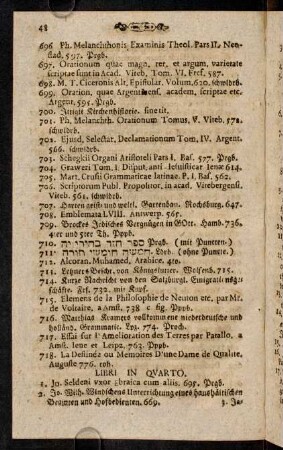 48
696 Ph. Melanchthonis Examinis Theol. Pars II. Neustad. 597. Prgb.
697. Orationum quae magn. rer. et argum. varietate
scriptae sunt in Acad. Viteb. Tom. VI. Frcf. 587.
698. M. T. Ciceronis Alt. Epistolar. Volum. 620. schwldrb.
699. Oration. quae Argentinens. academ. scriptae etc.
Argent. 595. Prgb.
700. Kirchenhistorie. sine tit.
701. Ph. Melanchth. Orationum Tomus. V. Viteb. 572.
schwldrb.
702. Ejusd. Selectat. Declamationum Tom. IV. Argent.
566. schwldrb.
703. Schegkii Organi Aristoteli Pars I. Bas. 577. Prgb.
704. Grawerz Tom. I Disput. anti-Jesuiticar Jenae 614.
705. Mart. Crusii Grammaticae latinae. P. I. Bas. 562.
706. Scriptorum Publ. Propositor. in acad. Vitebergensi.
Viteb. 561. schwldrb.
707. Harten geist und weltl. Gartenbau. Rochsburg. 647.
708. Emblemata LVIII. Antwerp. 565.
709. Brockes Irdisches Vergnügen in GOtt. Hamb. 736.
4ter und 5ter Th. Pppb.
710. ספר Prgb. (mit Puncten.)
711. חמשה חומשי תורה. Ldrb. (ohne Puncte.)
712. Alcoran. Muhamed. Arabice. 4to.
713. Lehners Beschr. von Königstuner. Weissenf. 715.
714. Kurze Nachricht von den Salzburgl. Emigrati
Frf. 732. mit Kupf.
715. Elemens de la Philosophie de Neuton etc. par Mr.
de Voltaire, a Amst. 738. 6 fig. Ppppb.
716. Matthias Kramers vollkommene niederdeutsche und
holländ. Grammatic. Lpz. 774. Proch.
717. Essai sur l'Amelioration des Terres par Parallo. a
Amst. Jene et Leipz. 763. Pppb.
718. La Destinée ou Memoires D'une Dame de Qualite,
Auguste 776. rob.
LIBRI IN QVARTO.
1. Jo. Seldeni vxor ebraica cum aliis. 695. Prgb.
2. Jo. Wilh. Windschens Unterrichtung eines haushältischen
Beamten und Hofbedienten. 669.
3. Jo-